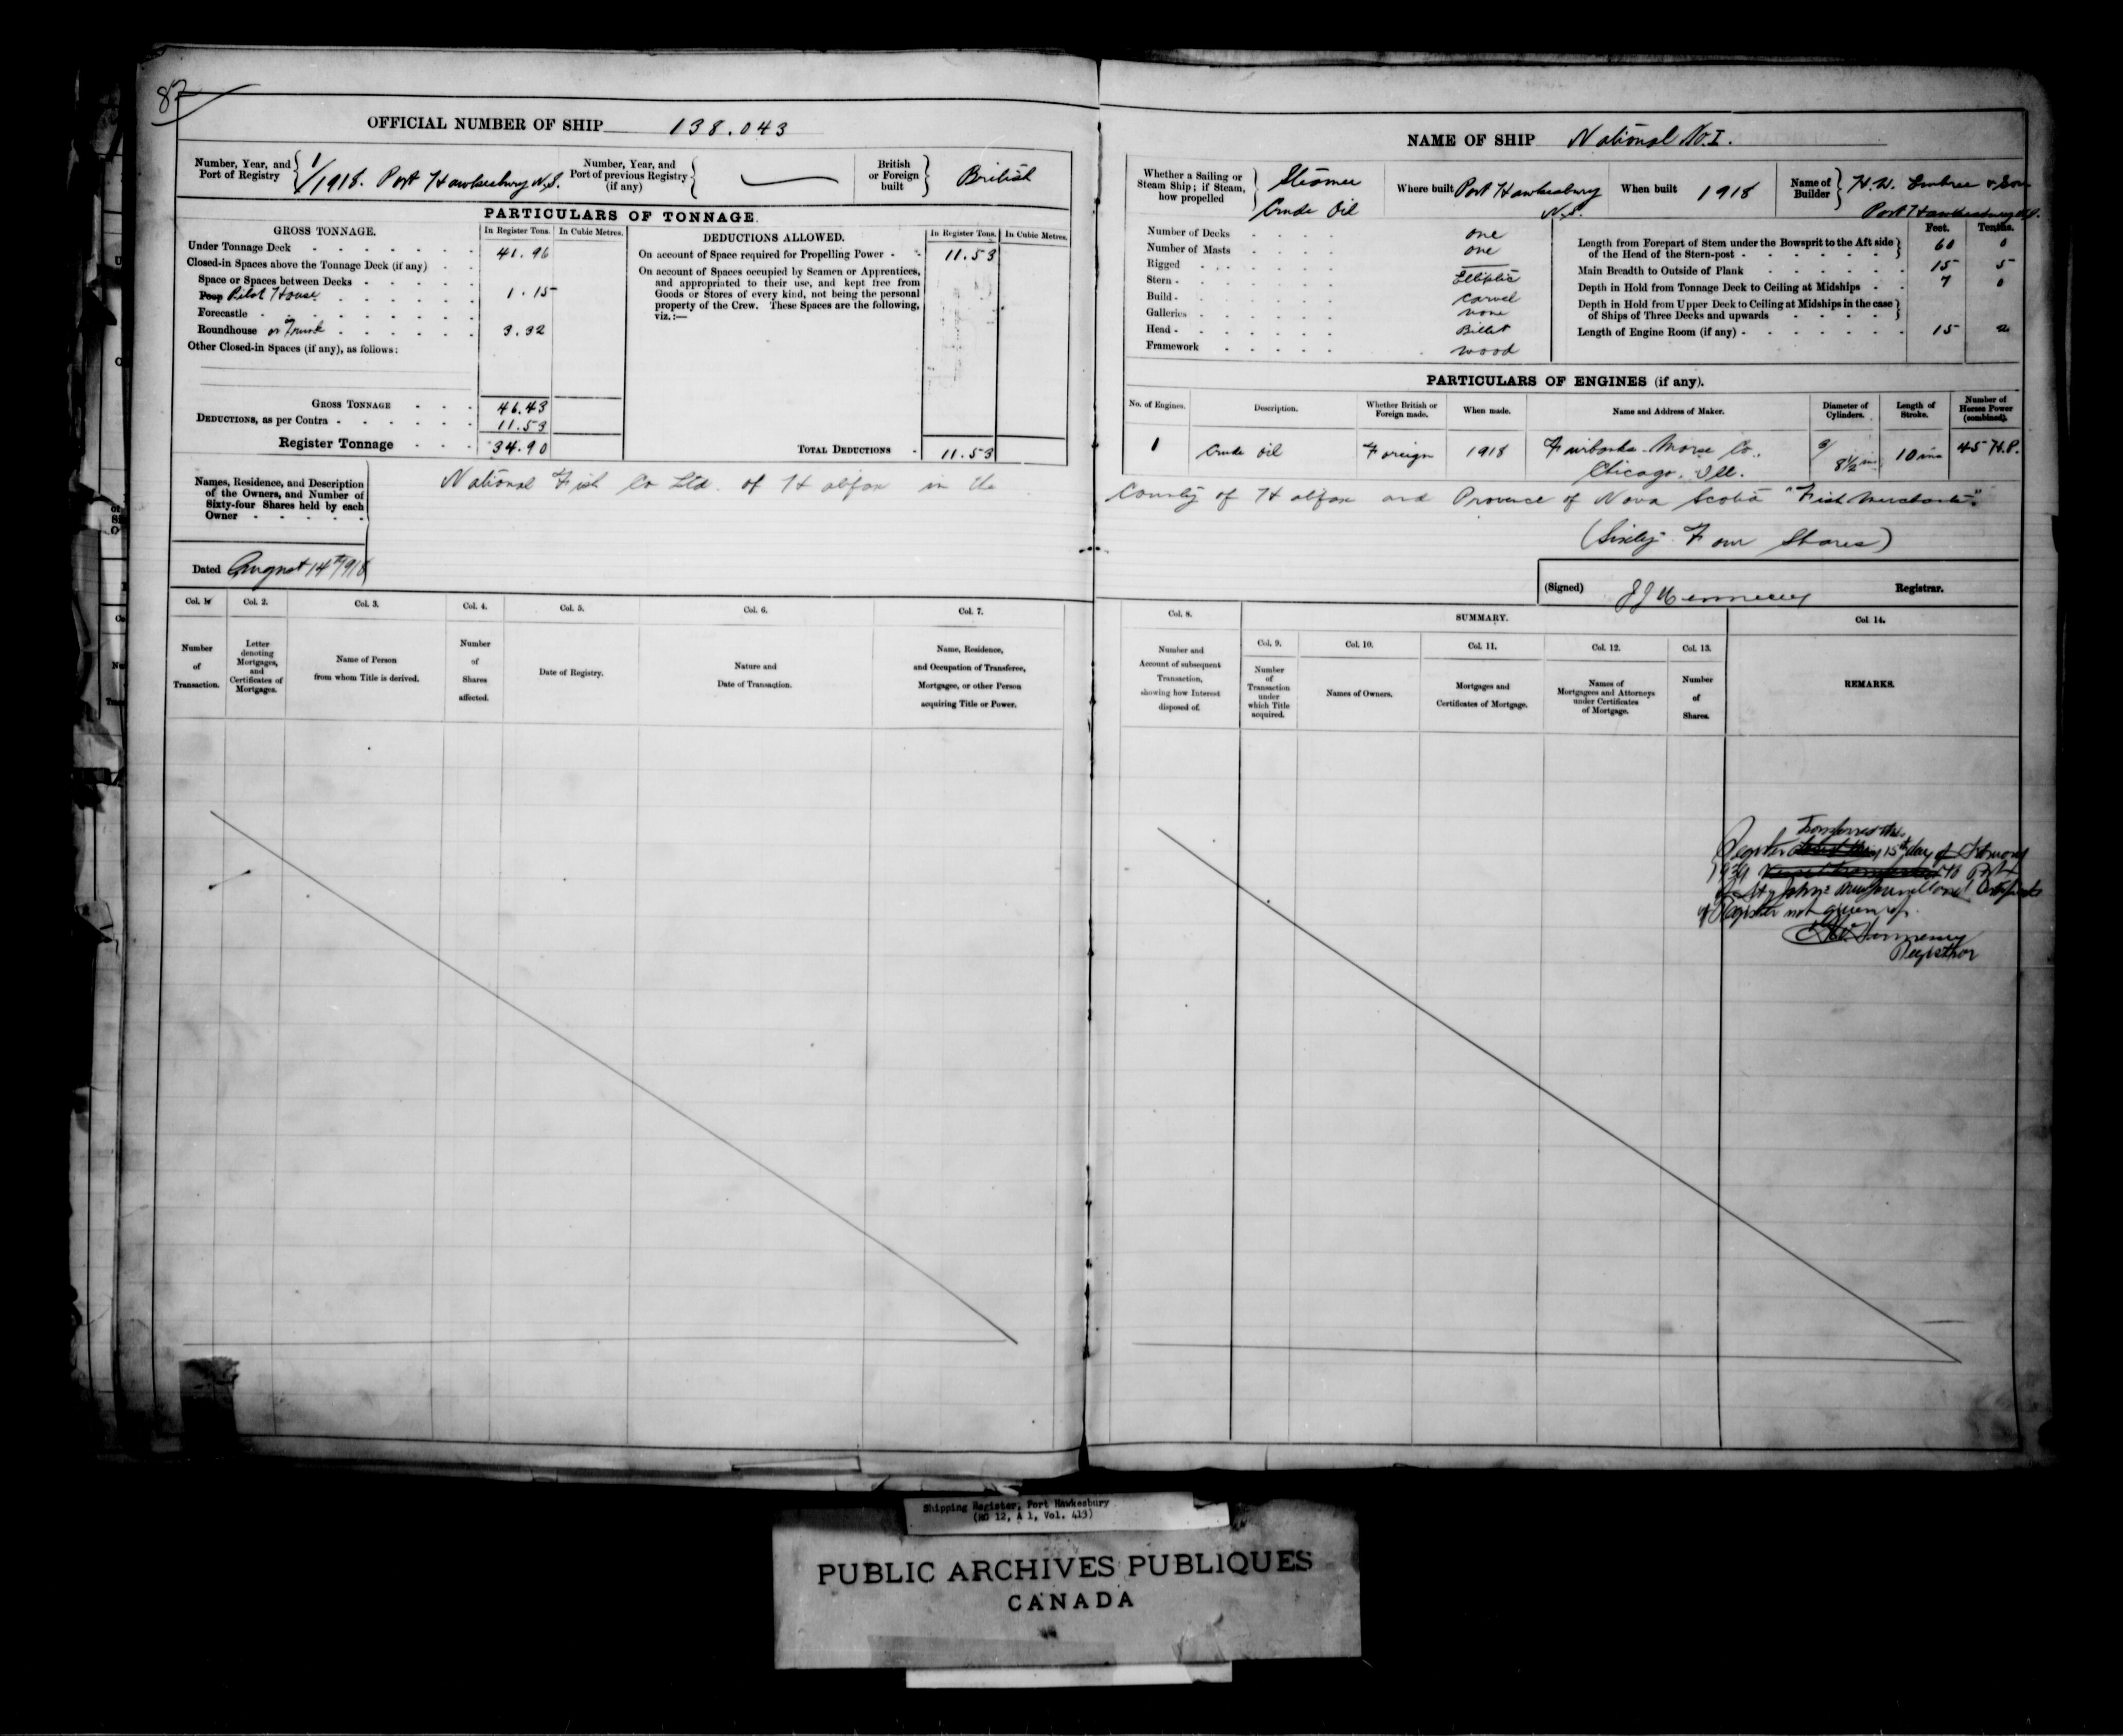 87
OFFICIAL NUMBER OF SHIP 138.043
Number, Year, and Port of Registry 1/1918. Port Hawkesbury N.S.
Number, Year, and Port of previous Registry (if any) —
British or Foreign built British
PARTICULARS OF TONNAGE.
GROSS TONNAGE. In Register Tons. In Cubic Metres.
Under Tonnage Deck 41.96
Closed-in Spaces above the Tonnage Deck (if any)
Space or Spaces between Decks
Poop Pilot House 1.15
Forecastle
Roundhouse or Trunk 3.32
Other Closed-in Spaces (if any), as follows:
GROSS TONNAGE 46.43
DEDUCTIONS, as per Contra 11.53
Register Tonnage 34.90
DEDUCTIONS ALLOWED. In Register Tons. In Cubic Metres.
On account of Space required for Propelling Power 11.53
On account of Spaces occupied by Seamen or Apprentices,
and appropriated to their use, and kept free from
Goods or Stores of every kind, not being the personal
property of the Crew. These Spaces are the following,
viz.:—
TOTAL DEDUCTIONS 11.53
NAME OF SHIP National No. I.
Whether a Sailing or Steam Ship; if Steam, how propelled Steamer Crude Oil
Where built Port Hawkesbury N.S.
When built 1918
Name of Builder H.W. Embree & Son Port Hawkesbury N.S.
Number of Decks one
Number of Masts one
Rigged —
Stern Elliptic
Build Carvel
Galleries none
Head Billet
Framework wood
Feet. Tenths.
Length from Forepart of Stem under the Bowsprit to the Aft side of the Head of the Stern-post 60 0
Main Breadth to Outside of Plank 15 5
Depth in Hold from Tonnage Deck to Ceiling at Midships 7 0
Depth in Hold from Upper Deck to Ceiling at Midships in the case of Ships of Three Decks and upwards
Length of Engine Room (if any) 15 2
PARTICULARS OF ENGINES (if any).
No. of Engines. Description. Whether British or Foreign made. When made. Name and Address of Maker. Diameter of Cylinders. Length of Stroke. Number of Horses Power (combined).
1 Crude Oil Foreign 1918 Fairbanks-Morse Co., Chicago, Ill. 8½ in 10 ins 45 H.P.
Names, Residence, and Description
of the Owners, and Number of
Sixty-four Shares held by each
Owner
National Fish Co Ltd. of Halifax in the
County of Halifax and Province of Nova Scotia "Fish Merchants".
(Sixty-Four Shares)
Dated August 14th 1918
(Signed) Registrar.
Col. 1. Col. 2. Col. 3. Col. 4. Col. 5. Col. 6. Col. 7.
Number of Transaction.
Letter denoting Mortgages, and Certificates of Mortgages.
Name of Person from whom Title is derived.
Number of Shares affected.
Date of Registry.
Nature and Date of Transaction.
Name, Residence, and Occupation of Transferee, Mortgagee, or other Person acquiring Title or Power.
Col. 8. SUMMARY. Col. 14.
Col. 9. Col. 10. Col. 11. Col. 12. Col. 13.
Number and Account of subsequent Transaction, showing how Interest disposed of.
Number of Transaction under which Title acquired.
Names of Owners.
Mortgages and Certificates of Mortgage.
Names of Mortgagees and Attorneys under Certificates of Mortgage.
Number of Shares.
REMARKS.
Transferred this
Register 15th day of February
to Port
of St. Johns Newfoundland Certificate
of Register not given up.
Registrar
Shipping Register, Port Hawkesbury
(RG 12, A 1, Vol. 413)
PUBLIC ARCHIVES PUBLIQUES
CANADA